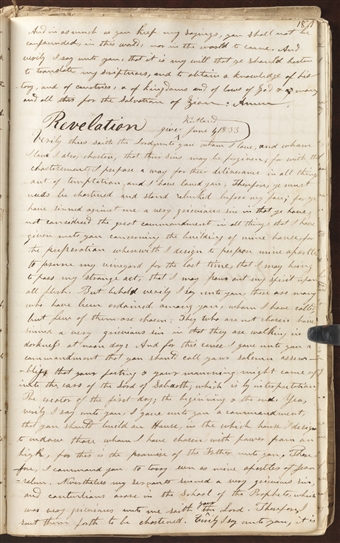 And in as much as you keep my sayings, you shall not be
confounded, in this world, nor in the world to come. And
verily I say unto you, that it is my will that ye should hasten
to translate my scriptures, and to obtain a knowledge of his-
tory, and of countries, & of kingdoms and of laws of God & man,
and all this for the salvation of Zion: Amen.
Kirtland
Revelation given June 1833
Verily thus saith the Lord unto you whom I love, and whom
I love I also chasten, that their sins may be forgiven, for with the
chastisement I prepare a way for their deliverance in all things
out of temptation, and I have loved you; Therefore, ye must
needs be chastened and stand rebuked before my face, for ye
have sinned against me a very grievous sin in that ye have
not considered the great commandment in all things that I have
given unto you concerning the building of mine house, for
the preparation wherewith I design to prepare mine apostles
to prune my vineyard for the last time, that I may bring
to pass my strange act, that I may pour out my spirit upon
all flesh. But behold verily I say unto you, there are many
who have been ordained among you, whom I have called
but few of them are chosen: They who are not chosen have
sinned a very grievous sin in that they are walking in
darkness at noon day; And for this cause I gave unto you a
commandment that you should call your solemn assem-
blies that your fasting & your mourning might come up
into the ears of the Lord of Sabaoth, which is by interpretation
The creator of the first day; the beginning & the end. Yea,
verily I say unto you, I gave unto you a commandment,
that you should build an House, in the which house I design
to endow those whom I have chosen with power from on
high, for this is the promise of the Father unto you; There-
fore, I command you to tarry even as mine apostles at Jeru-
salem. Nevertheless my servants sinned a very grievous sin,
and contentions arose in the School of the Prophets, which
was very grievous unto me saith your Lord: Therefore, I
sent them forth to be chastened. Verily I say unto you, it is